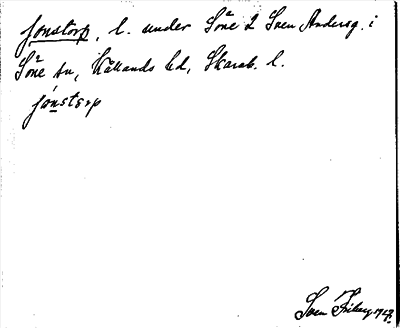 Jonstorp, l. under Söne 2 Sven Andersg. i
Söne sn, Kållands hd, Skarab. l.
jónstorp
Sven Friberg 1947.